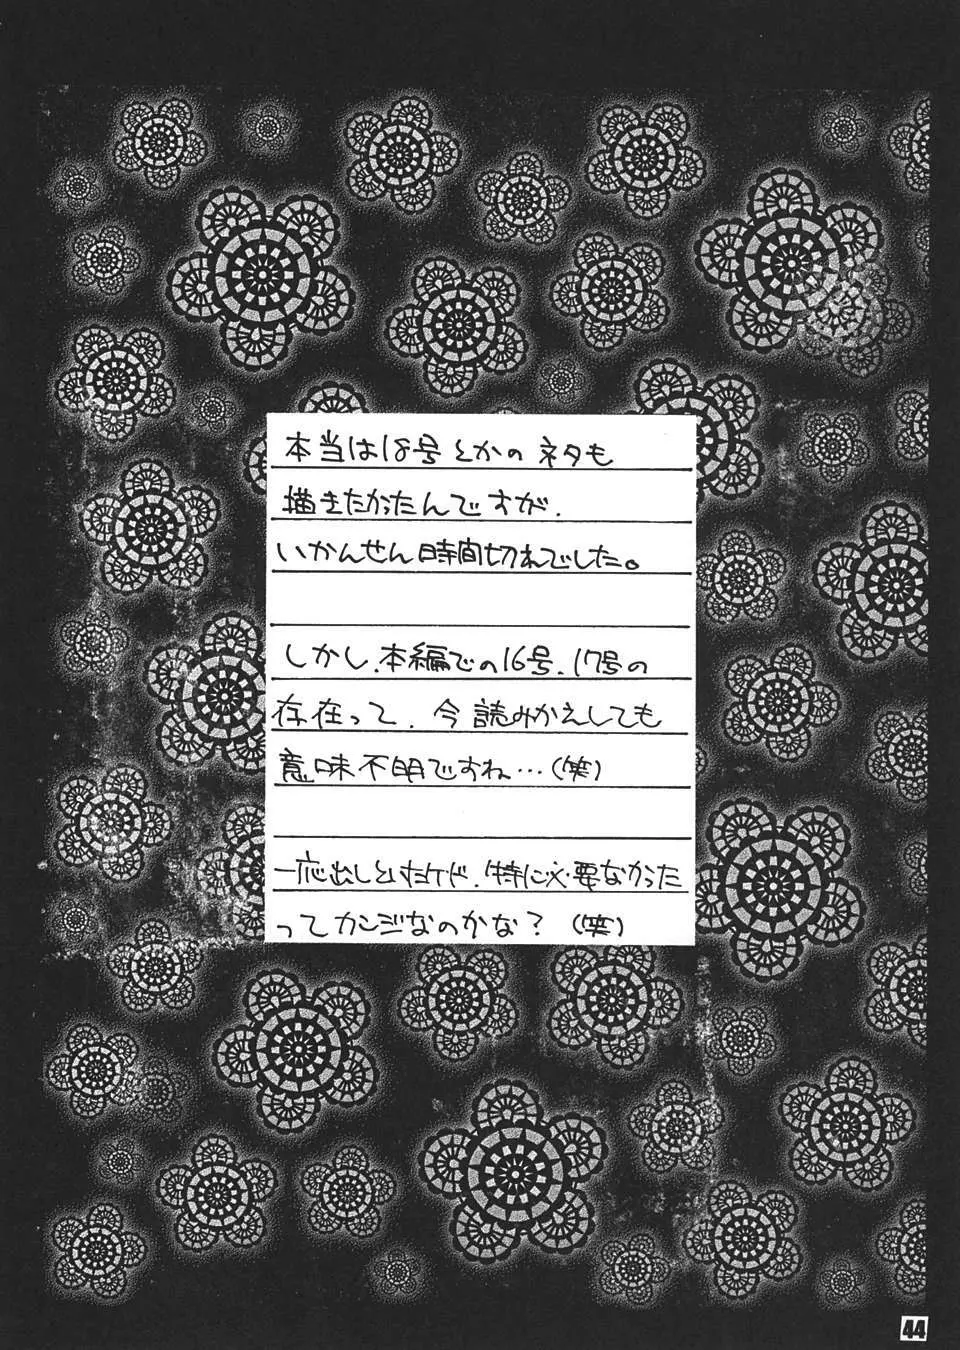 本当は18号とかのネタも
描きたかったんですが、
いかんせん時間切れでした。
しかし、本編での16号、17号の
存在って、今読みかえしても
意味不明ですね…(笑)
一応出しといたけど、特に必要なかった
ってカンジなのかな？(笑)
44